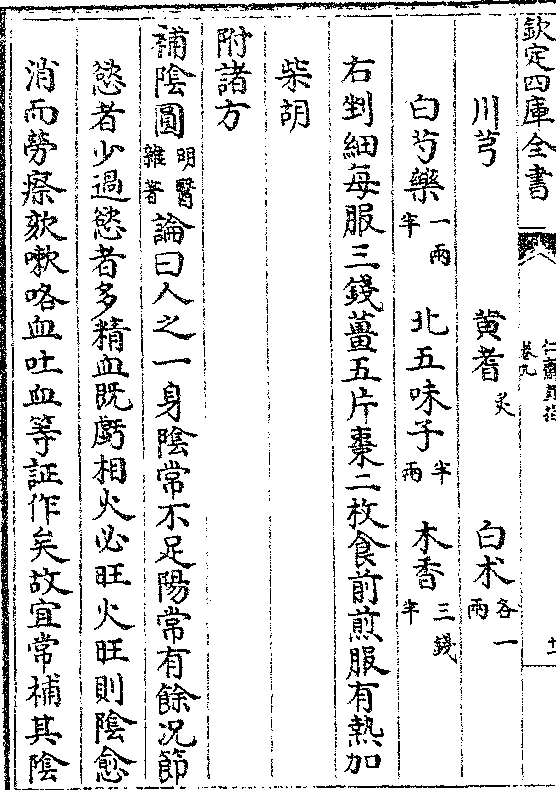 欽定四庫全書
仁齋直指
卷九
十一
川芎 黄耆炙 白朮各一兩
白芍藥一兩半 北五味子半兩 木香三錢半
右剉細每服三錢薑五片棗二枚食前煎服有熱加
柴胡
附諸方
補陰圓明醫雜著論曰人之一身陰常不足陽常有餘况節
慾者少過慾者多精血既虧相火必旺火旺則陰愈
消而勞瘵欬嗽咯血吐血等証作矣故宜常補其陰